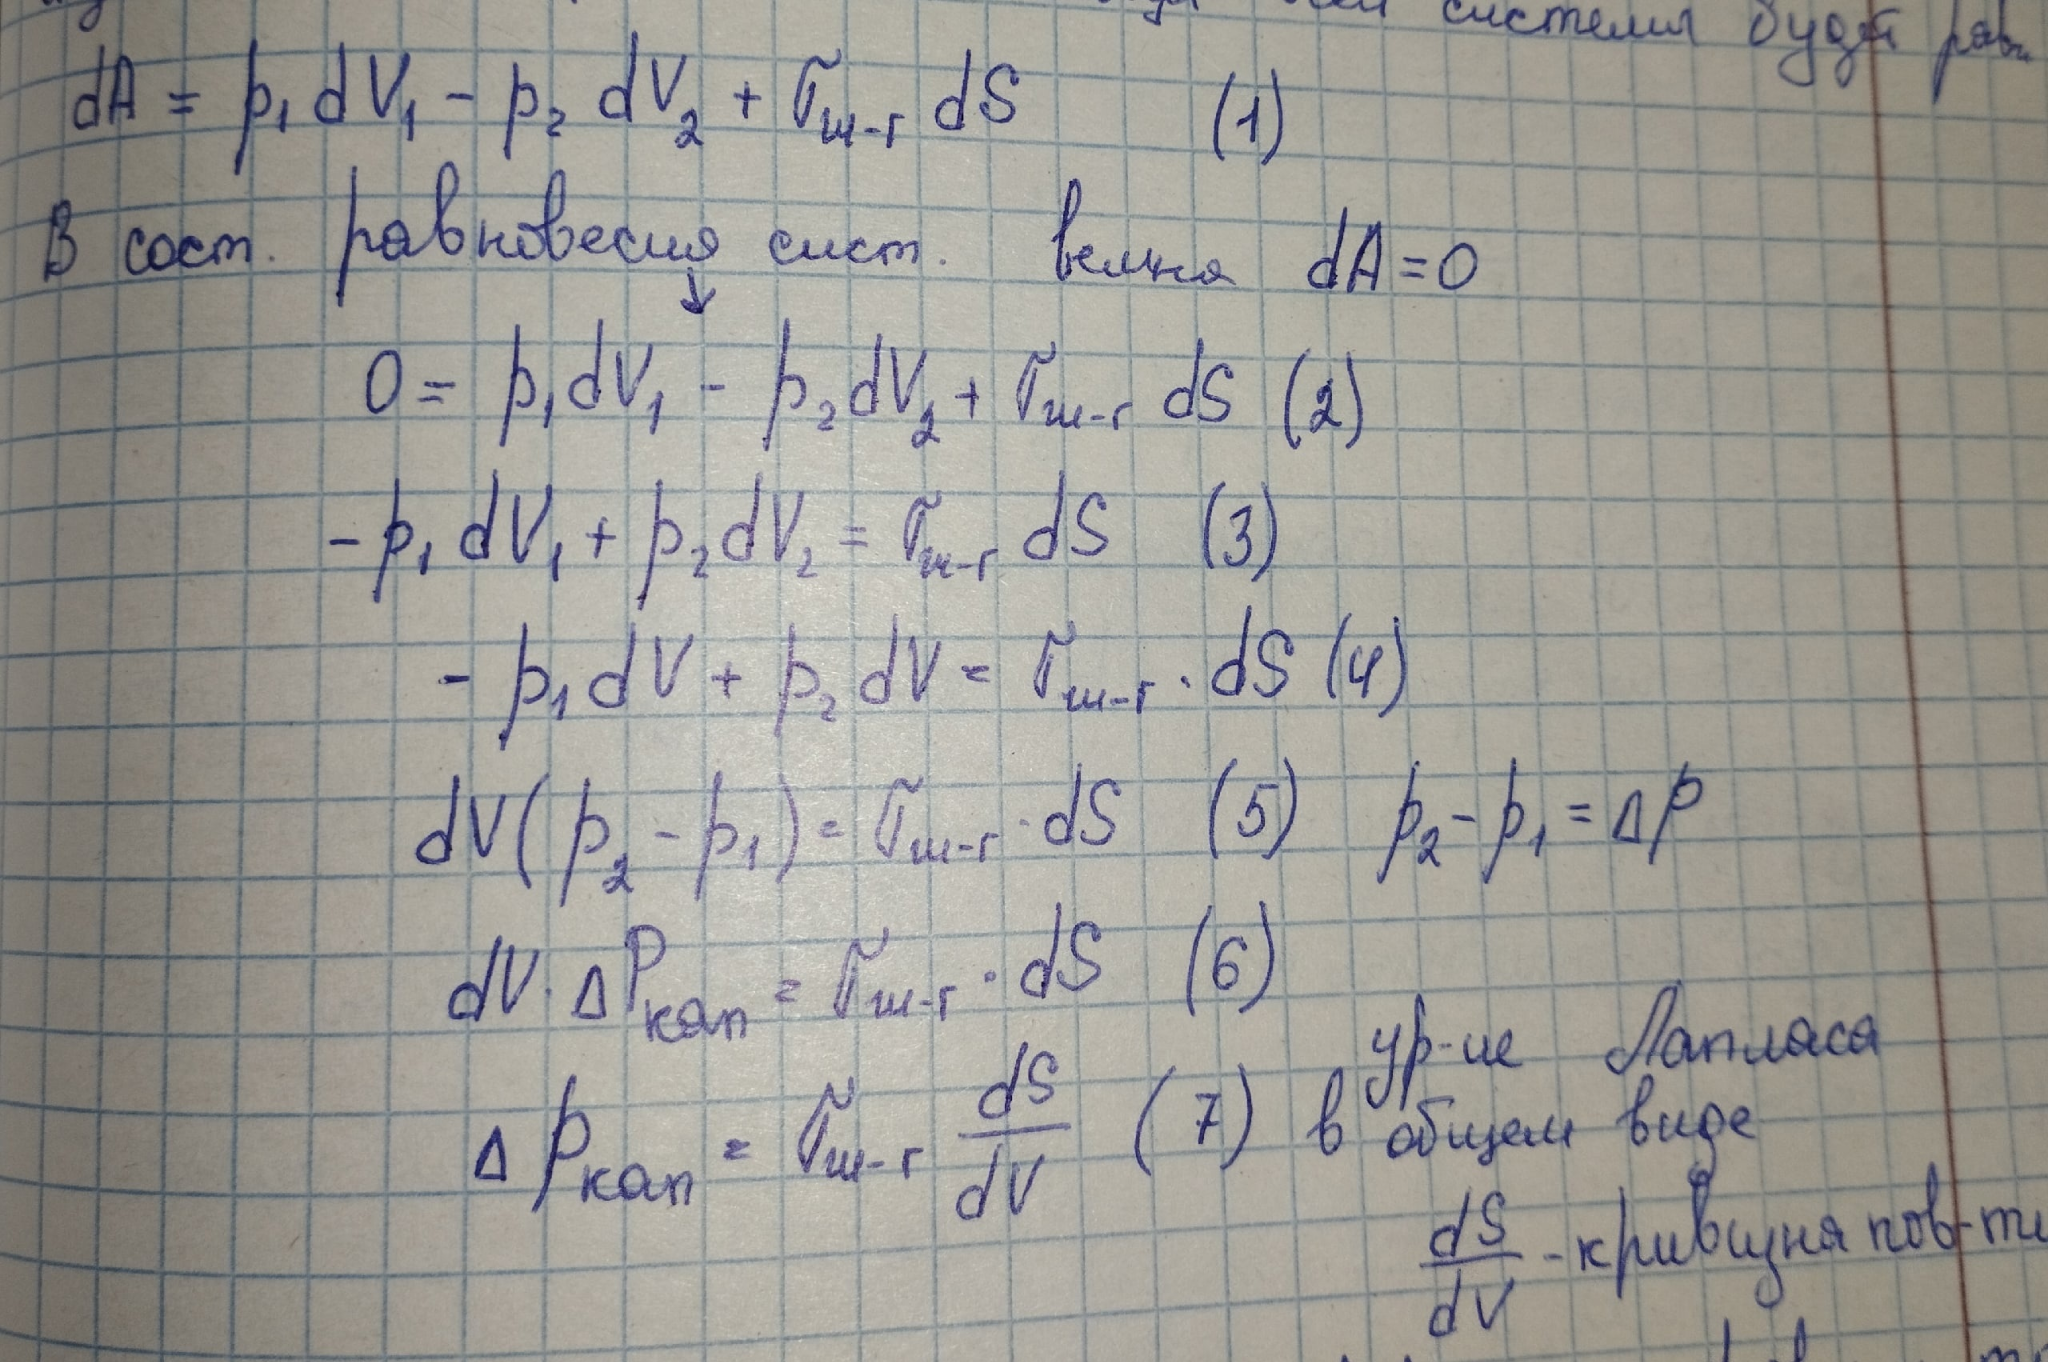 системы будет равн
dA = p₁ dV₁ - p₂ dV₂ + σж-г dS (1)
В сост. равновесия сист. велич dA = 0
↓
0 = p₁ dV₁ - p₂ dV₂ + σж-г dS (2)
- p₁ dV₁ + p₂ dV₂ = σж-г dS (3)
- p₁ dV + p₂ dV = σж-г · dS (4)
dV (p₂ - p₁) = σж-г · dS (5) p₂ - p₁ = ΔP
dV · ΔPкап = σж-г · dS (6)
Δpкап = σж-г dS/dV (7) ур-ие Лапласа
в общем виде
dS/dV - кривизна пов-ти